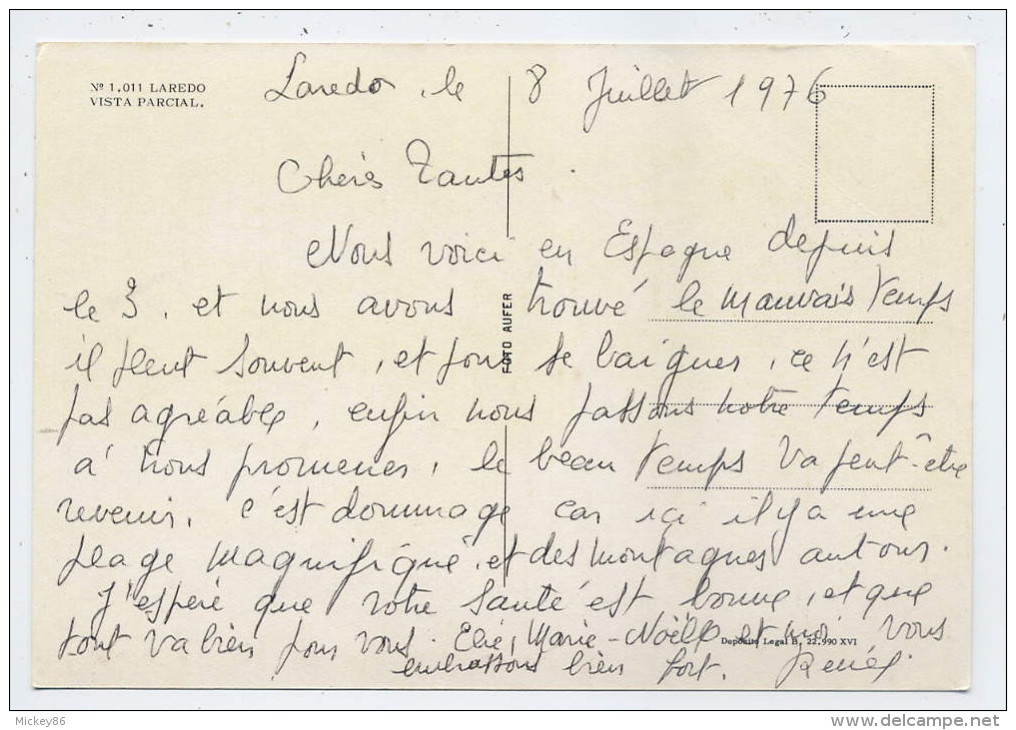 Nº 1.011 LAREDO
VISTA PARCIAL.
Laredo, le 8 Juillet 1976
Chères Tantes.
Nous voici en Espagne depuis
le 3, et nous avons trouvé le mauvais temps
il pleut souvent, et pour se baigner, ce n'est
pas agréable, enfin nous passons notre temps
à nous promener, le beau temps va peut-être
revenir, c'est dommage car ici il y a une
plage magnifique, et des montagnes autour.
J'espère que votre santé est bonne, et que
tout va bien pour vous. Elie, Marie-Noëlle et moi vous
embrassons bien fort. Renée.
FOTO AUFER
Depósito Legal B. 22.990 XVI
Mickey86
www.delcampe.net